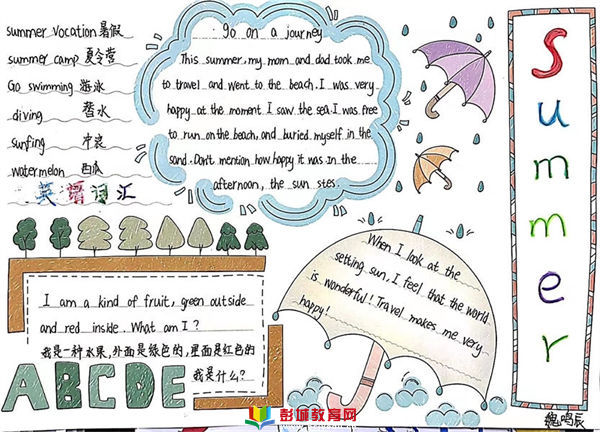 summer vocation 暑假
summer camp 夏令营
Go swimming 游泳
diving 潜水
sunfing 冲浪
watermelon 西瓜
英语词汇
go on a journey
This summer, my mom and dad took me
to travel and went to the beach. I was very
happy at the moment I saw the sea. I was free
to run on the beach, and buried myself in the
sand. Don't mention how happy it was in the
afternoon, the sun stes
Summer
When I look at the
setting sun, I feel that the world
is wonderful! Travel makes me very
happy!
I am a kind of fruit, green outside
and red inside. What am I?
我是一种水果,外面是绿色的,里面是红色的
我是什么?
ABCDE
彭城教育网
魏鸣辰